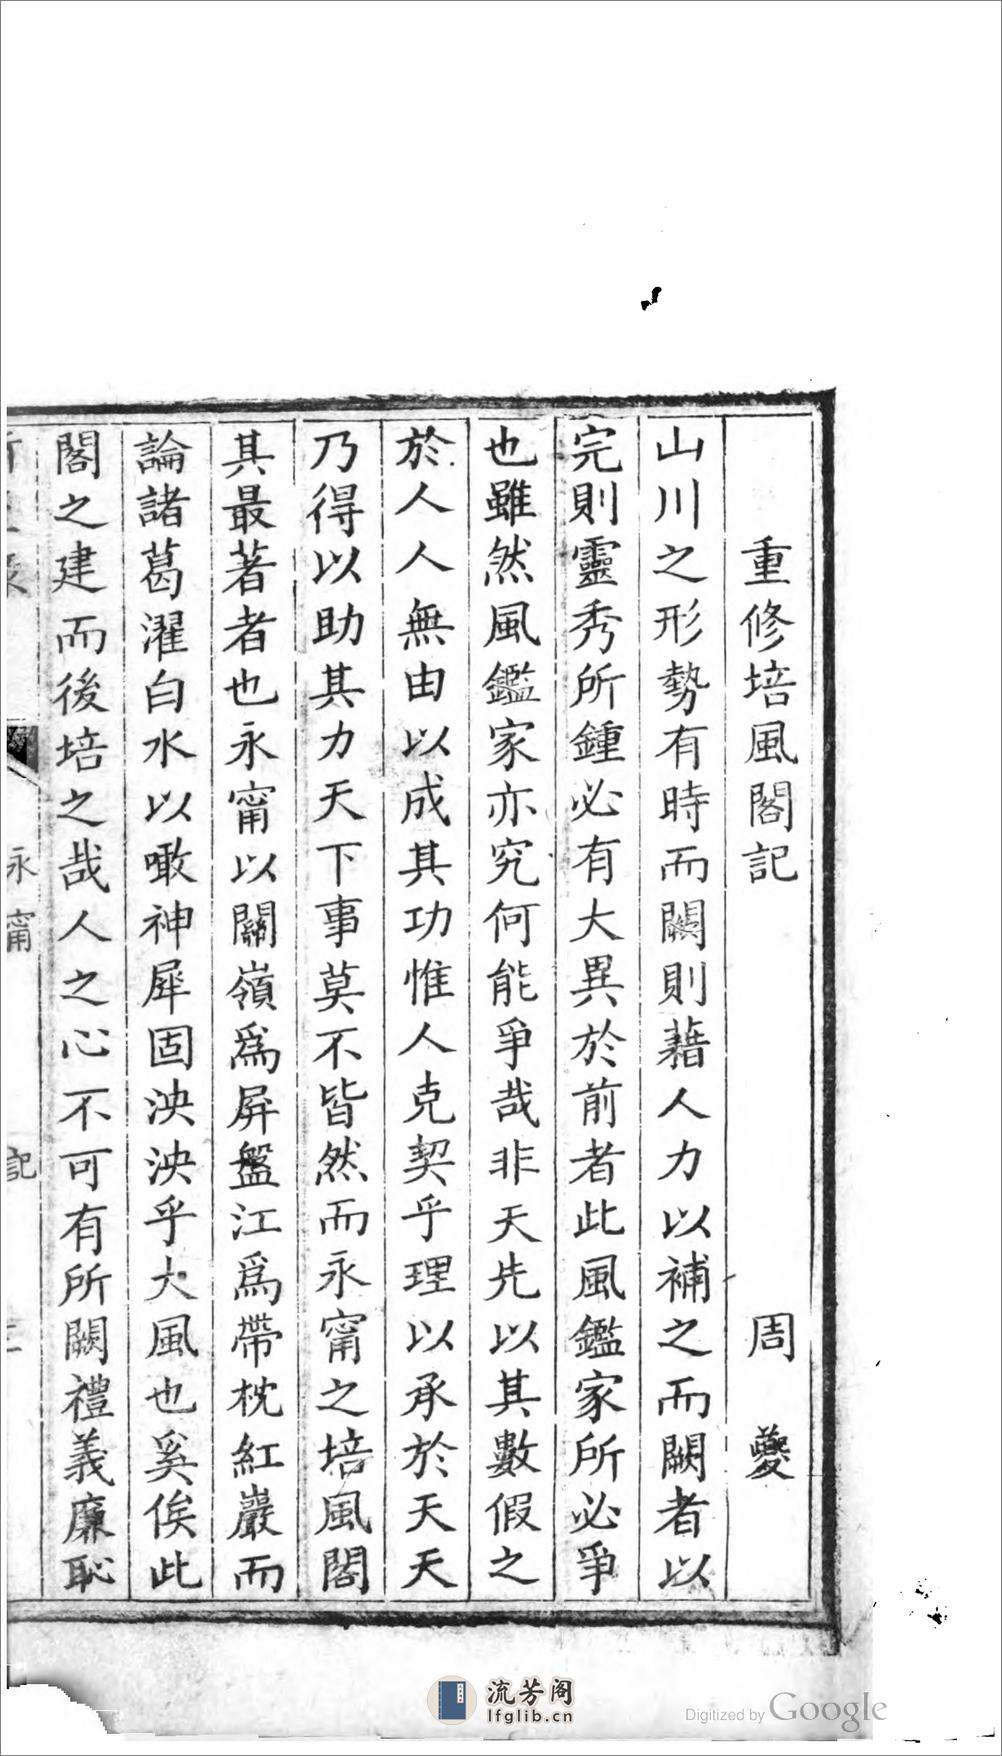 重修培風閣記 周夔
山川之形勢有時而闕則藉人力以補之而闕者以
完則靈秀所鍾必有大異於前者此風鑑家所必爭
也雖然風鑑家亦究何能爭哉非天先以其數假之
於人人無由以成其功惟人克契乎理以承於天天
乃得以助其力天下事莫不皆然而永甯之培風閣
其最著者也永甯以關嶺爲屏盤江爲帶枕紅巖而
論諸葛濯白水以噉神犀固泱泱乎大風也奚俟此
閣之建而後培之哉人之心不可有所闕禮義廉恥
永甯 記
流芳阁
lfglib.cn
Digitized by Google